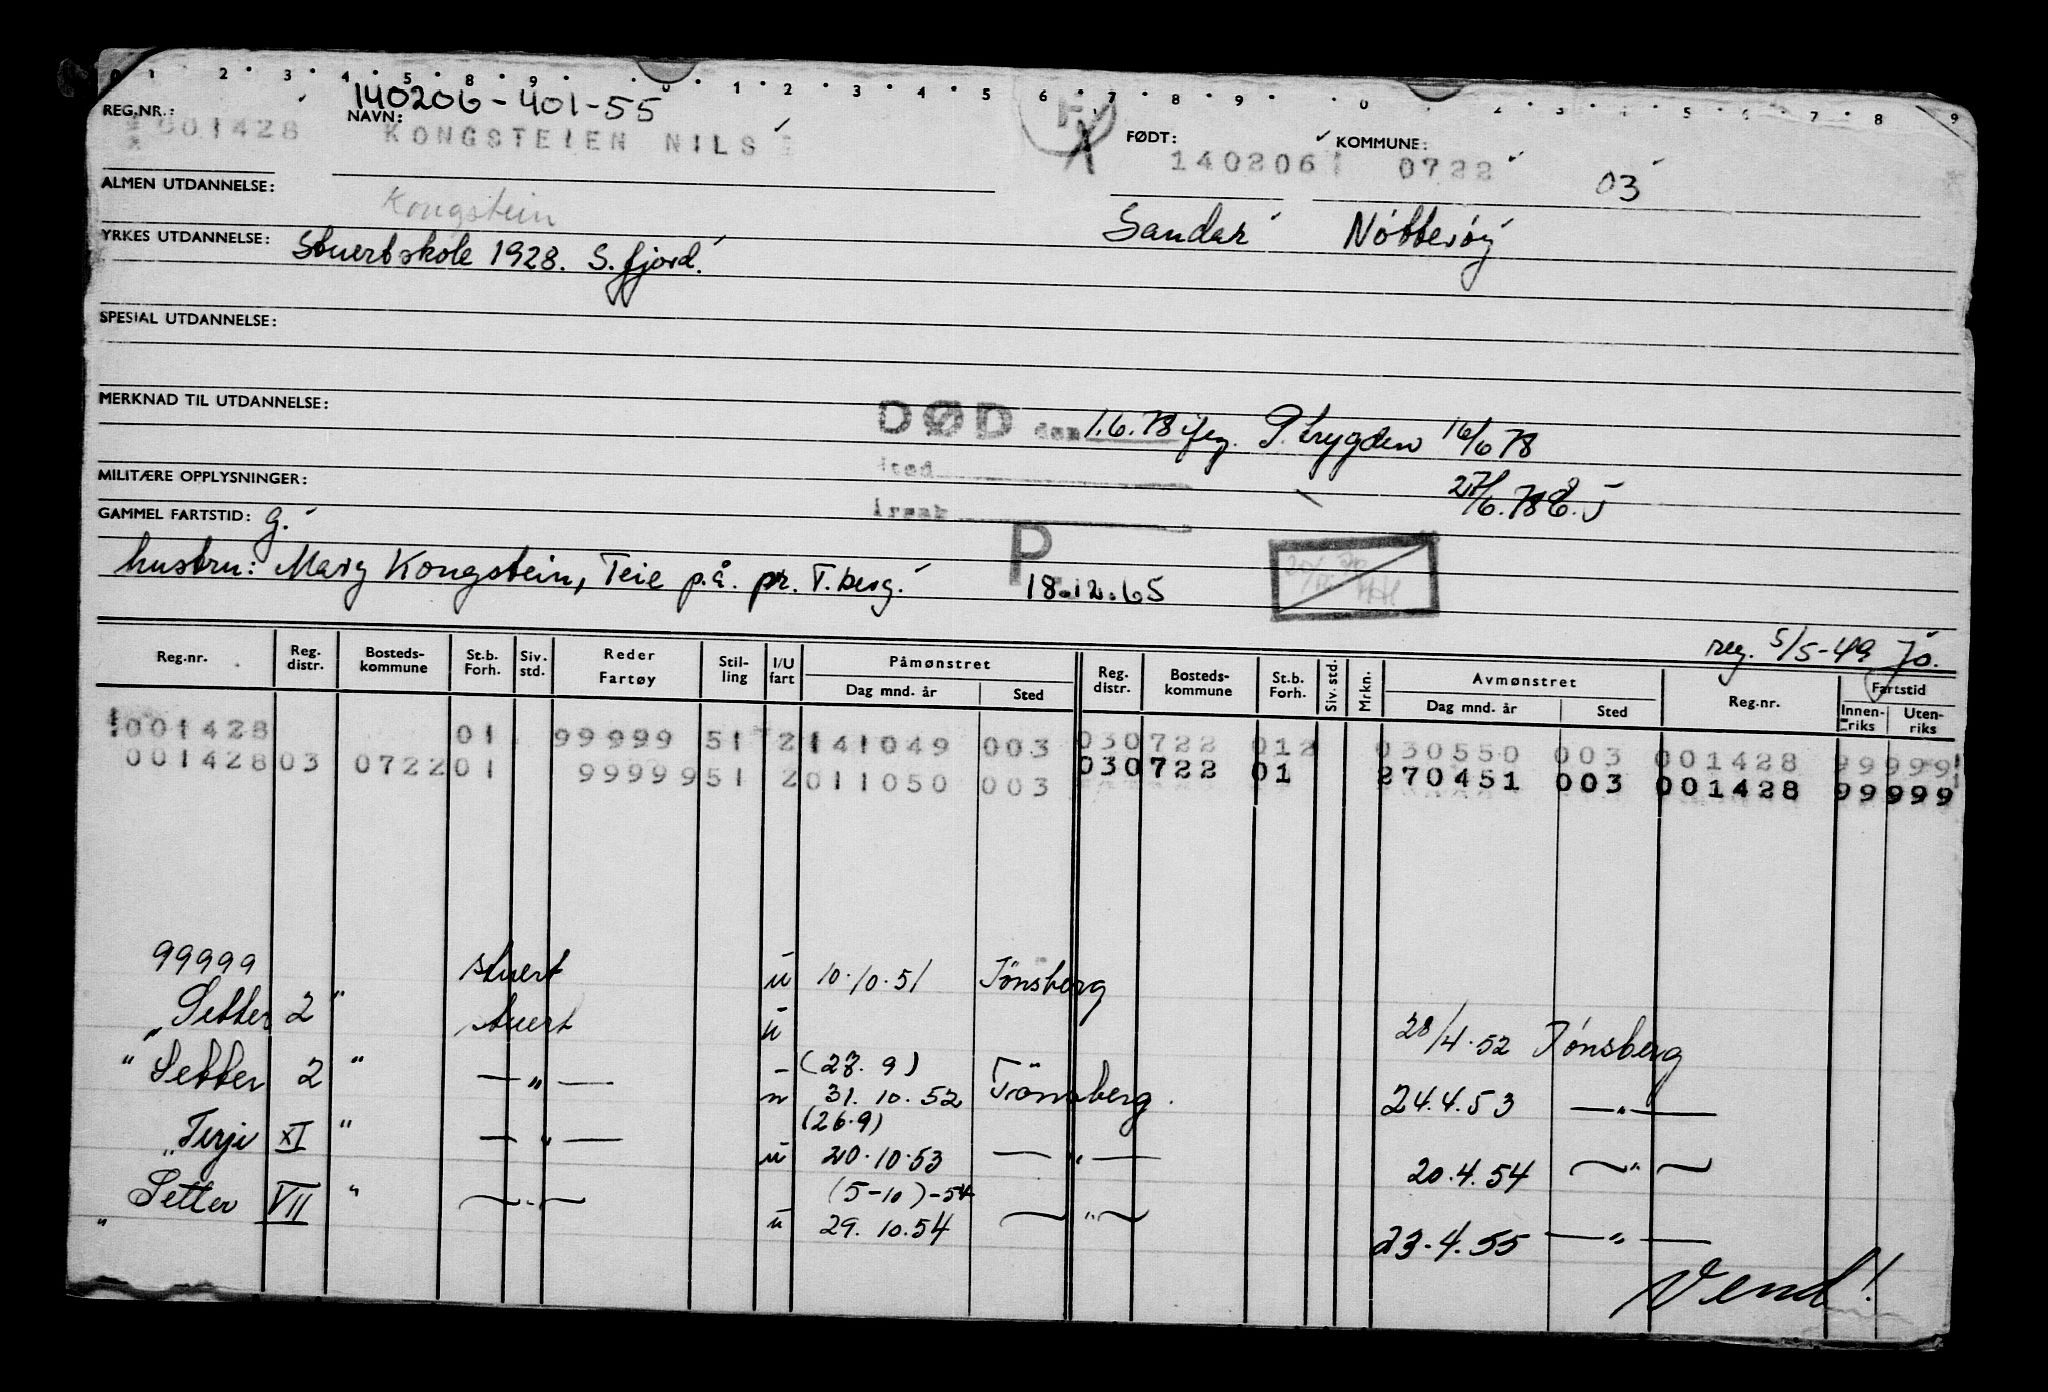 0 1 2 3 4 5 8 9 0 1 2 3 4 5 6 7 8 9 0 2 3 4 5 6 7 8 9
140206-401-55
REG.NR.: NAVN: FØDT: KOMMUNE:
001428 KONGSTEIEN NILS 140206 0722 03
ALMEN UTDANNELSE: Kongstein Sandar Nötteröy
YRKES UTDANNELSE: Stuertskole 1928. S.fjord.
SPESIAL UTDANNELSE:
MERKNAD TIL UTDANNELSE:
DØD den 1.6.78 iføg. P.trygden 16/6 78
MILITÆRE OPPLYSNINGER: sted 27/6.78
GAMMEL FARTSTID: g. Årsak
hustru: Mary Kongstein, Teie p.å. pr. T.berg. P 18.12.65
reg. 5/5-49 Jo.
Reg.nr. Reg. distr. Bosteds-kommune St.b. Forh. Siv. std. Reder Fartøy Stil-ling I/U fart Påmønstret Dag mnd. år Sted Reg. distr. Bosteds-kommune St.b. Forh. Siv. std. Mrkn. Avmønstret Dag mnd. år Sted Reg.nr. Fartstid Innen-riks Uten-riks
001428 01 99999 51 2 141049 003 030722 012 030550 003 001428 99999
001428 03 0722 01 99999 51 2 011050 003 030722 01 270451 003 001428 99999
99999 stuert u 10.10.51 Tönsberg
" Setter 2 " stuert u 28/4.52 Tönsberg
(28.9)
" Setter 2 " — " — u 31.10.52 Tönsberg. 24.4.53 — " —
(26.9)
" Terje XI " — " — u 20.10.53 — " — 20.4.54 — " —
(5-10)-54
" Setter VII " — " — u 29.10.54 — " — 23.4.55 — " —
Vend!